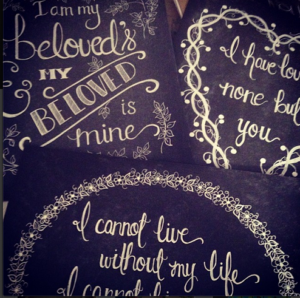 I am my
beloved's
MY
BELOVED
is
mine
I have lov
none but
you
I cannot live
without my life
I cannot li